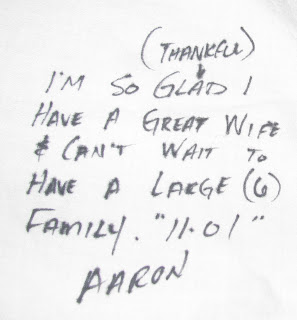 (THANKFUL)
I'M SO GLAD I
HAVE A GREAT WIFE
& CAN'T WAIT TO
HAVE A LARGE (6)
FAMILY. "11·01"
AARON